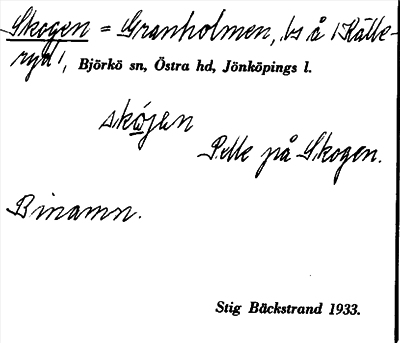 Skogen = Granholmen, ls å /Källe-
ryd/, Björkö sn, Östra hd, Jönköpings l.
skójen
Pelle på Skogen.
Binamn.
Stig Bäckstrand 1933.